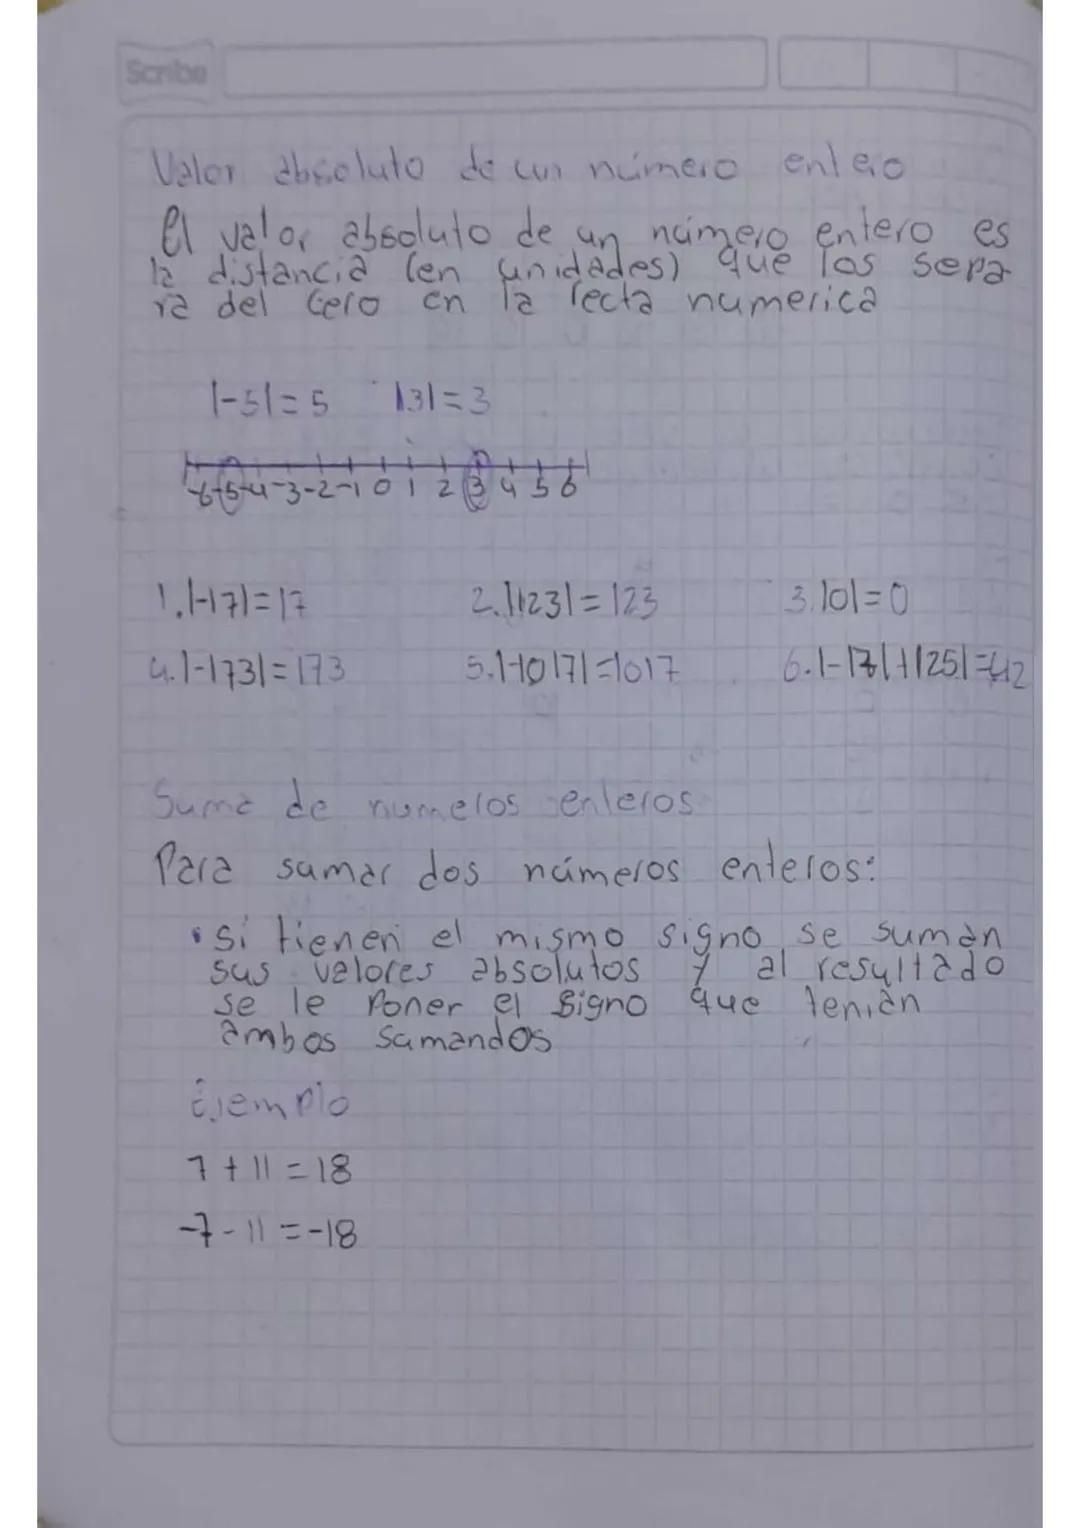 Scribe
Valor absoluto de un número entero
El valor absoluto de un número entero es
la distancia (en unidades) que los sepa
ra del cero en la recta numerica
|-5|=5 |3|=3
-6-5-4-3-2-1 0 1 2 3 4 5 6
1.|-17|=17 2.|123|=123 3.|0|=0
4.|-173|=173 5.|-1017|=1017 6.|-17|+|25|=42
Suma de numeros enteros
Para sumar dos números enteros:
• Si tienen el mismo signo se suman
sus valores absolutos y al resultado
se le poner el signo que tenian
ambos sumandos
Ejemplo
7+11=18
-7-11=-18